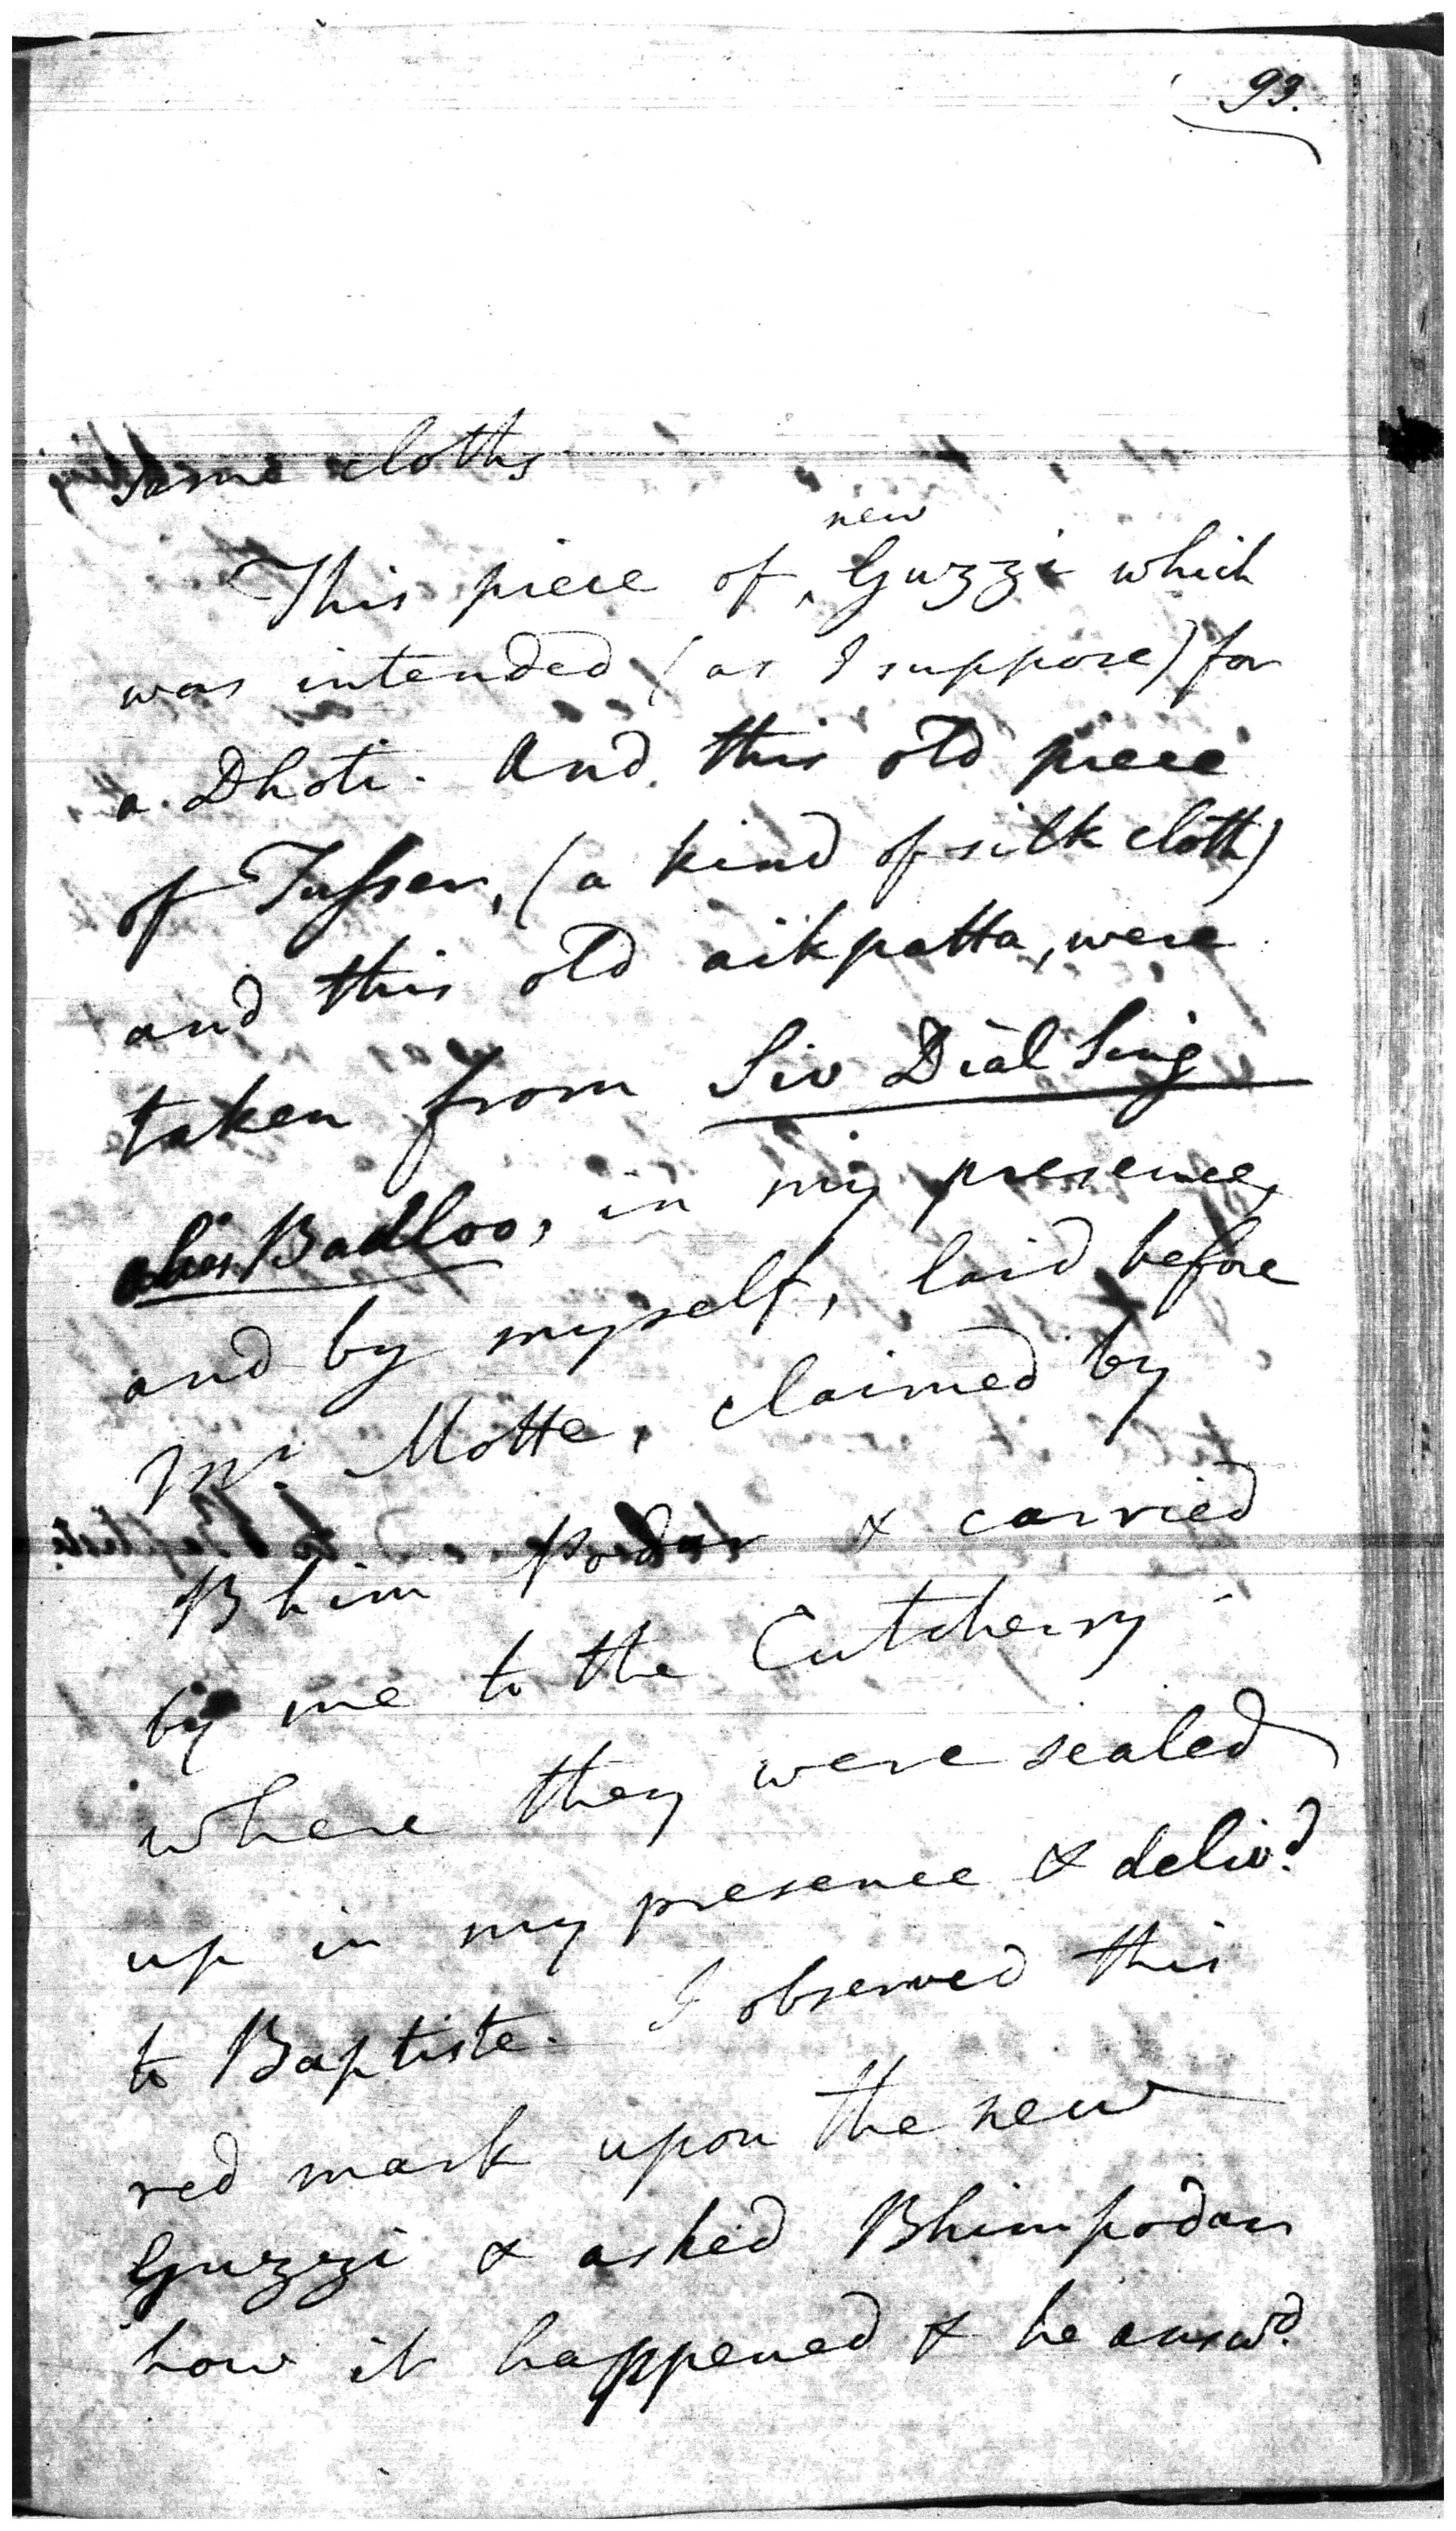 99.
Same cloths
new
This piece of ‸ Guzzi which
was intended (as I suppose) for
a Dhoti. And this old piece
of Tusser, (a kind of silk cloth)
and this old aikpatta, were
taken from Siv Dial Sing
alias Badloo, in my presence,
and by myself, laid before
Mr. Motte, claimed by
Bhim podar & carried
by me to the Cutcherry
where they were sealed
up in my presence & delivd.
to Baptiste. I observed this
red mark upon the new
Guzzi & asked Bhimpodar
how it happened & he answd.